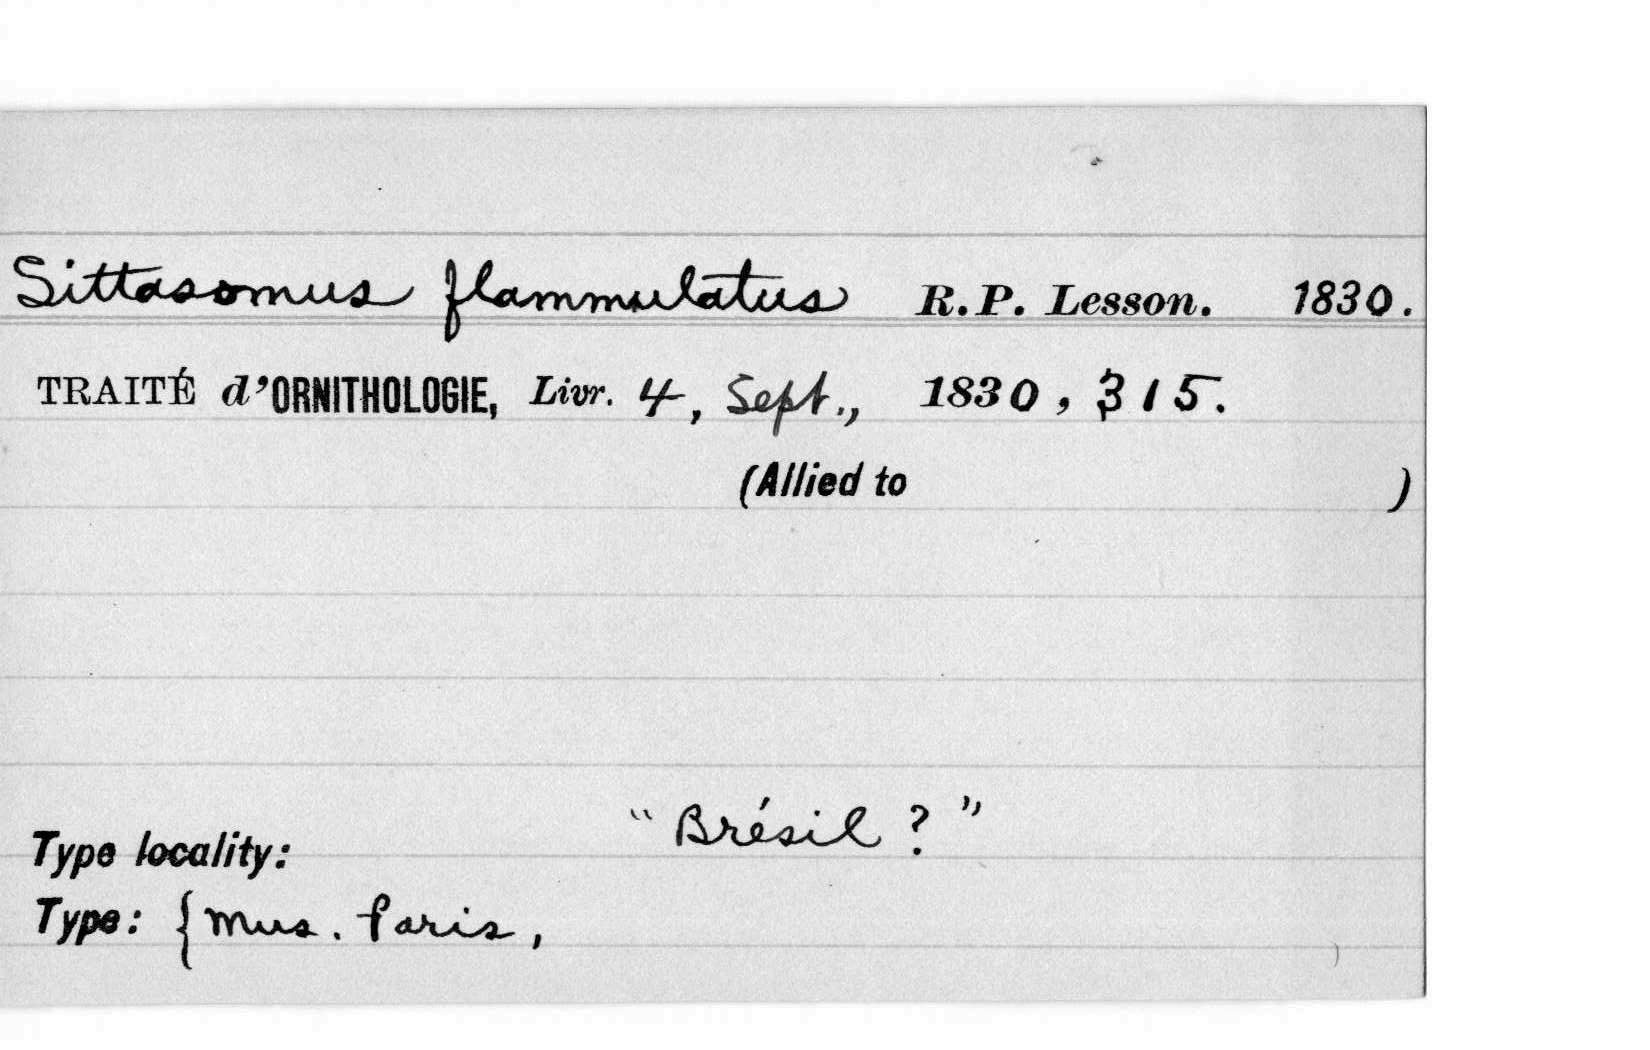 Sittasomus flammulatus R.P. Lesson. 1830.
TRAITÉ d'ORNITHOLOGIE, Livr. 4, Sept., 1830, 315.
(Allied to )
Type locality: "Brésil ?"
Type: {Mus. Paris,